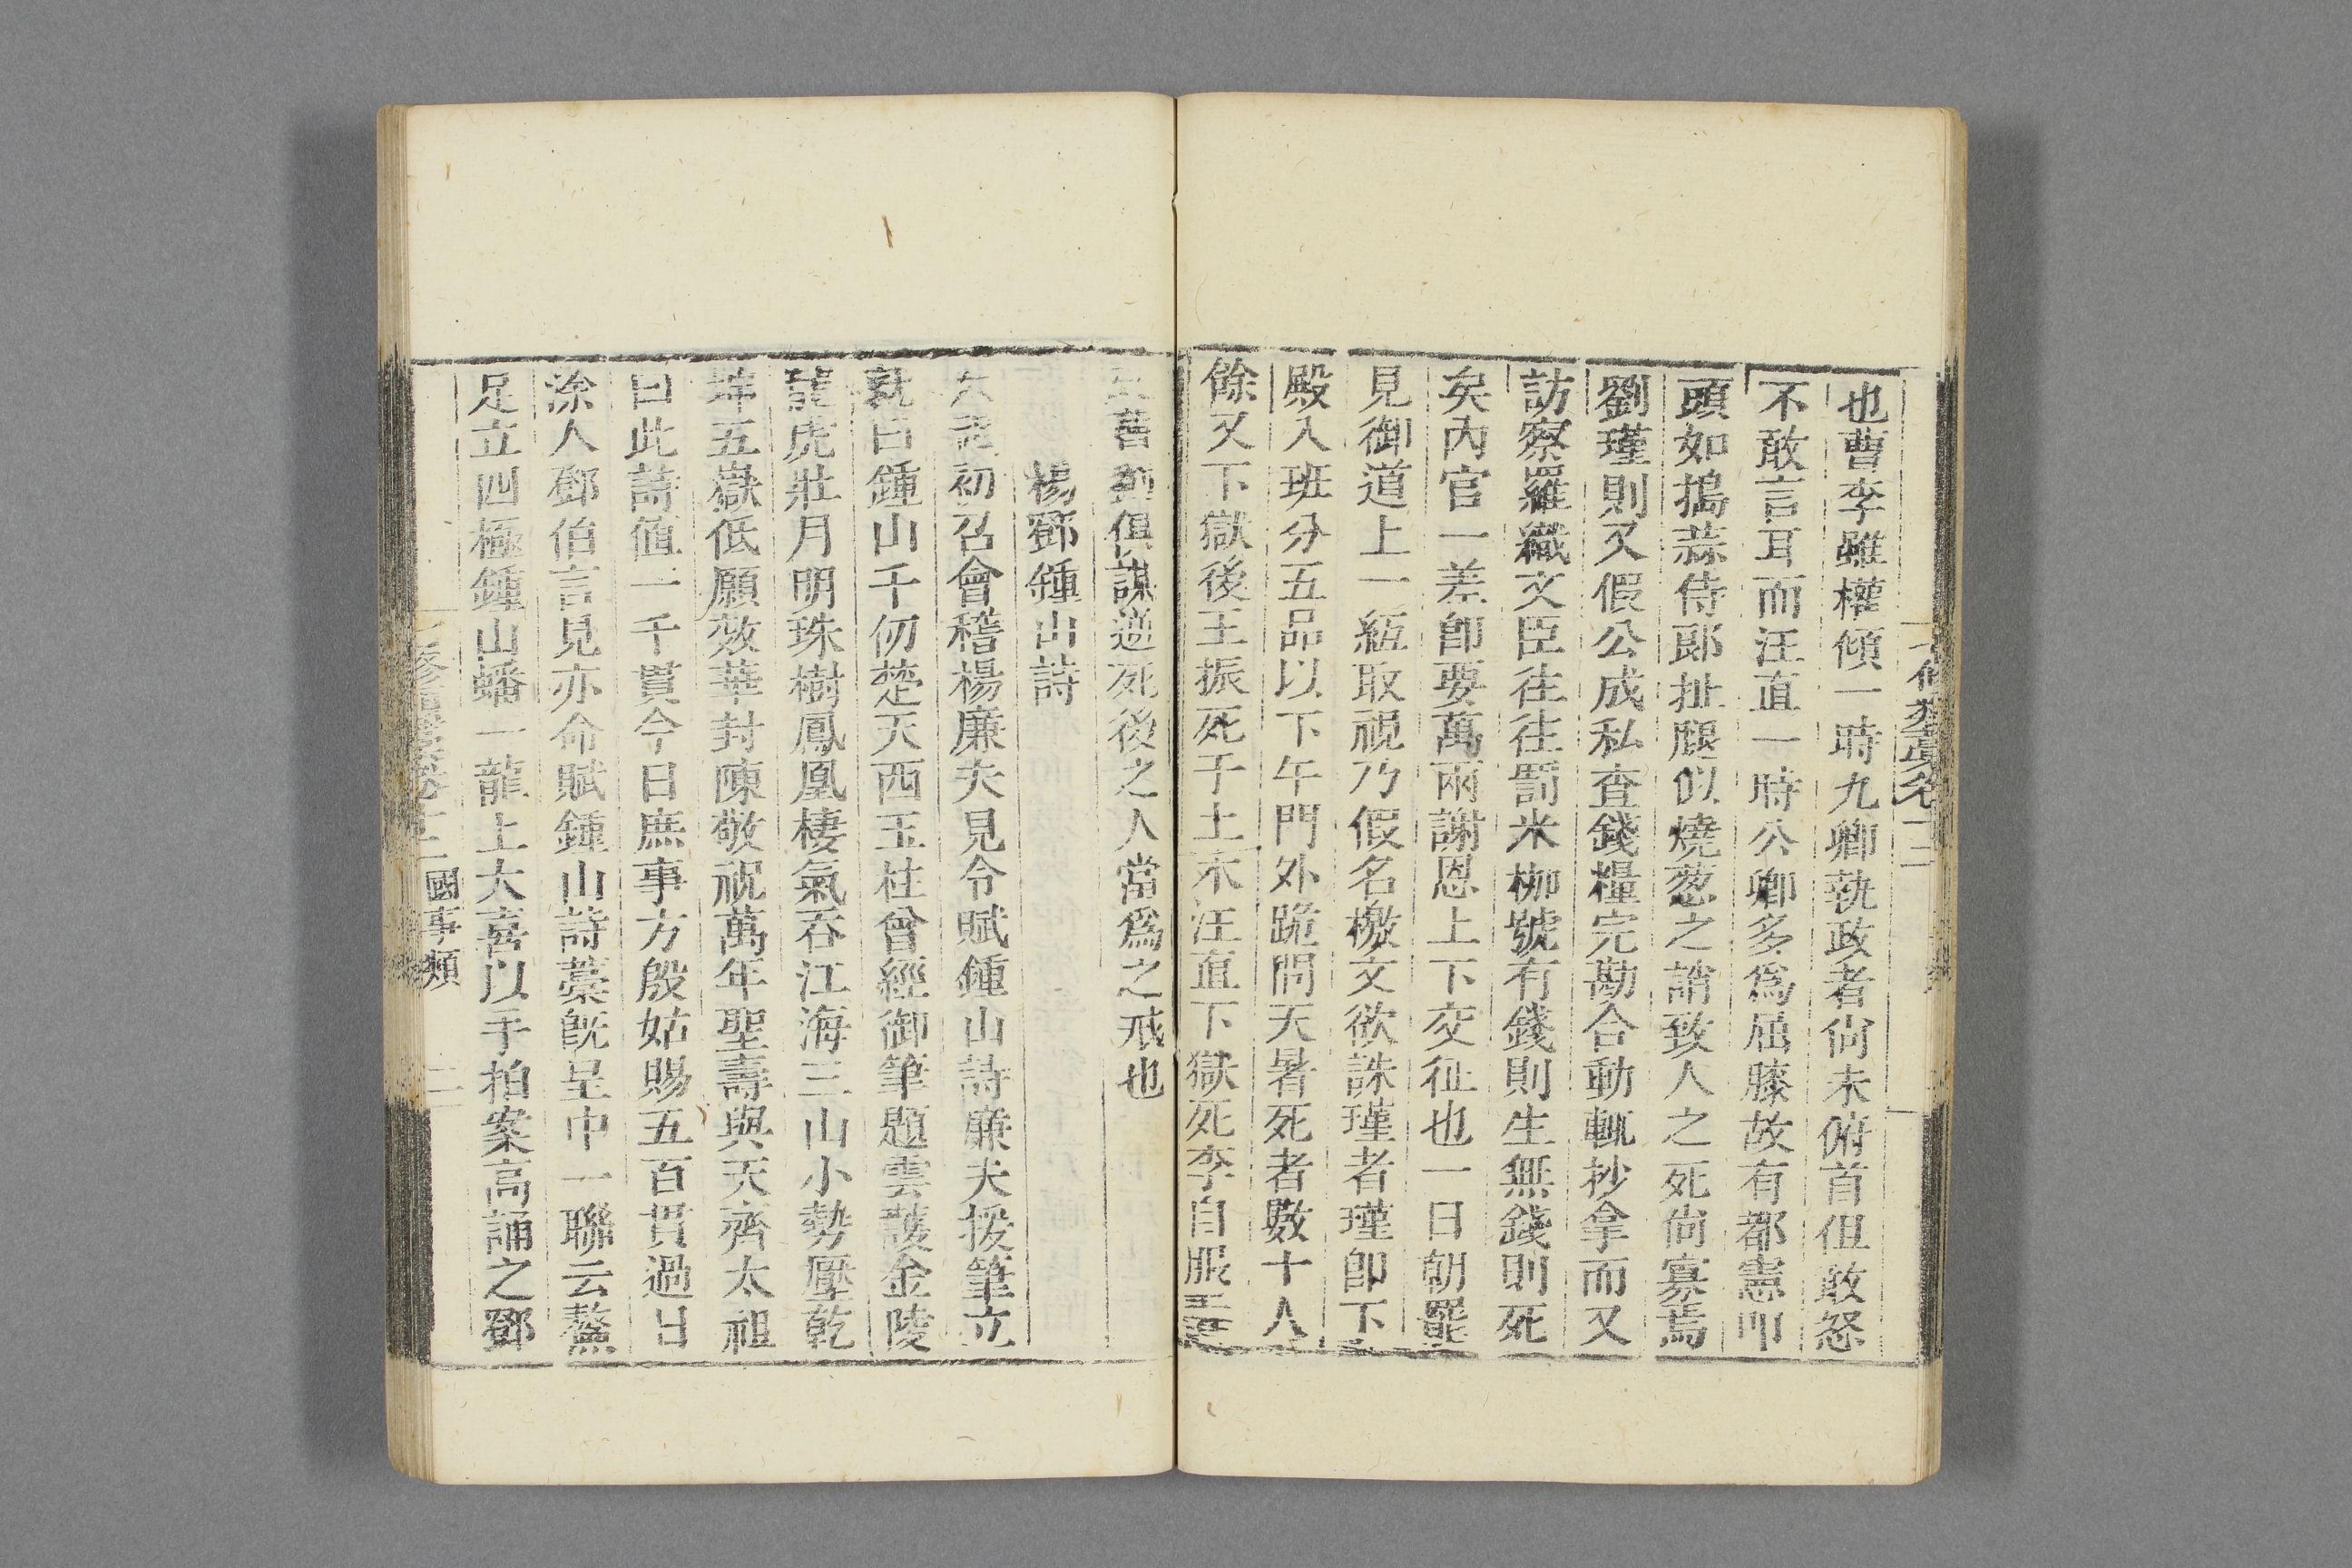 也曹李雖權傾一時九卿執政者尙未俯首但敢怒
不敢言耳而汪直一時公卿多爲屈膝故有都憲叩
頭如搗蒜侍郎扯腿似燒葱之誚致人之死尙寡焉
劉瑾則又假公成私查錢糧完勘合動輒抄拿而又
訪察羅織文臣往往罰米枷號有錢則生無錢則死
矣內官一差卽要萬兩謝恩上下交征也一日朝罷
見御道上一紙取視乃假名檄文欲誅瑾者瑾卽下
殿入班分五品以下午門外跪問天暑死者數十人
餘又下獄後王振死于土木汪直下獄死李自服
曹劉俱謀逆死後之人當爲之戒也
楊鄧鍾山詩
初召會稽楊廉夫見令賦鍾山詩廉夫援筆立
就曰鍾山千仞楚天西玉柱曾經御筆題雲護金陵
龍虎壯月明珠樹鳳凰棲氣吞江海三山小勢壓乾
坤五嶽低願效華封陳敬祝萬年聖壽與天齊太祖
曰此詩値一千貫今日庶事方殷姑賜五百貫過日
涂人鄧伯言見亦命賦鍾山詩藁旣呈中一聯云鰲
足立四極鍾山蟠一龍上大喜以手拍案高誦之鄧
國事類 二